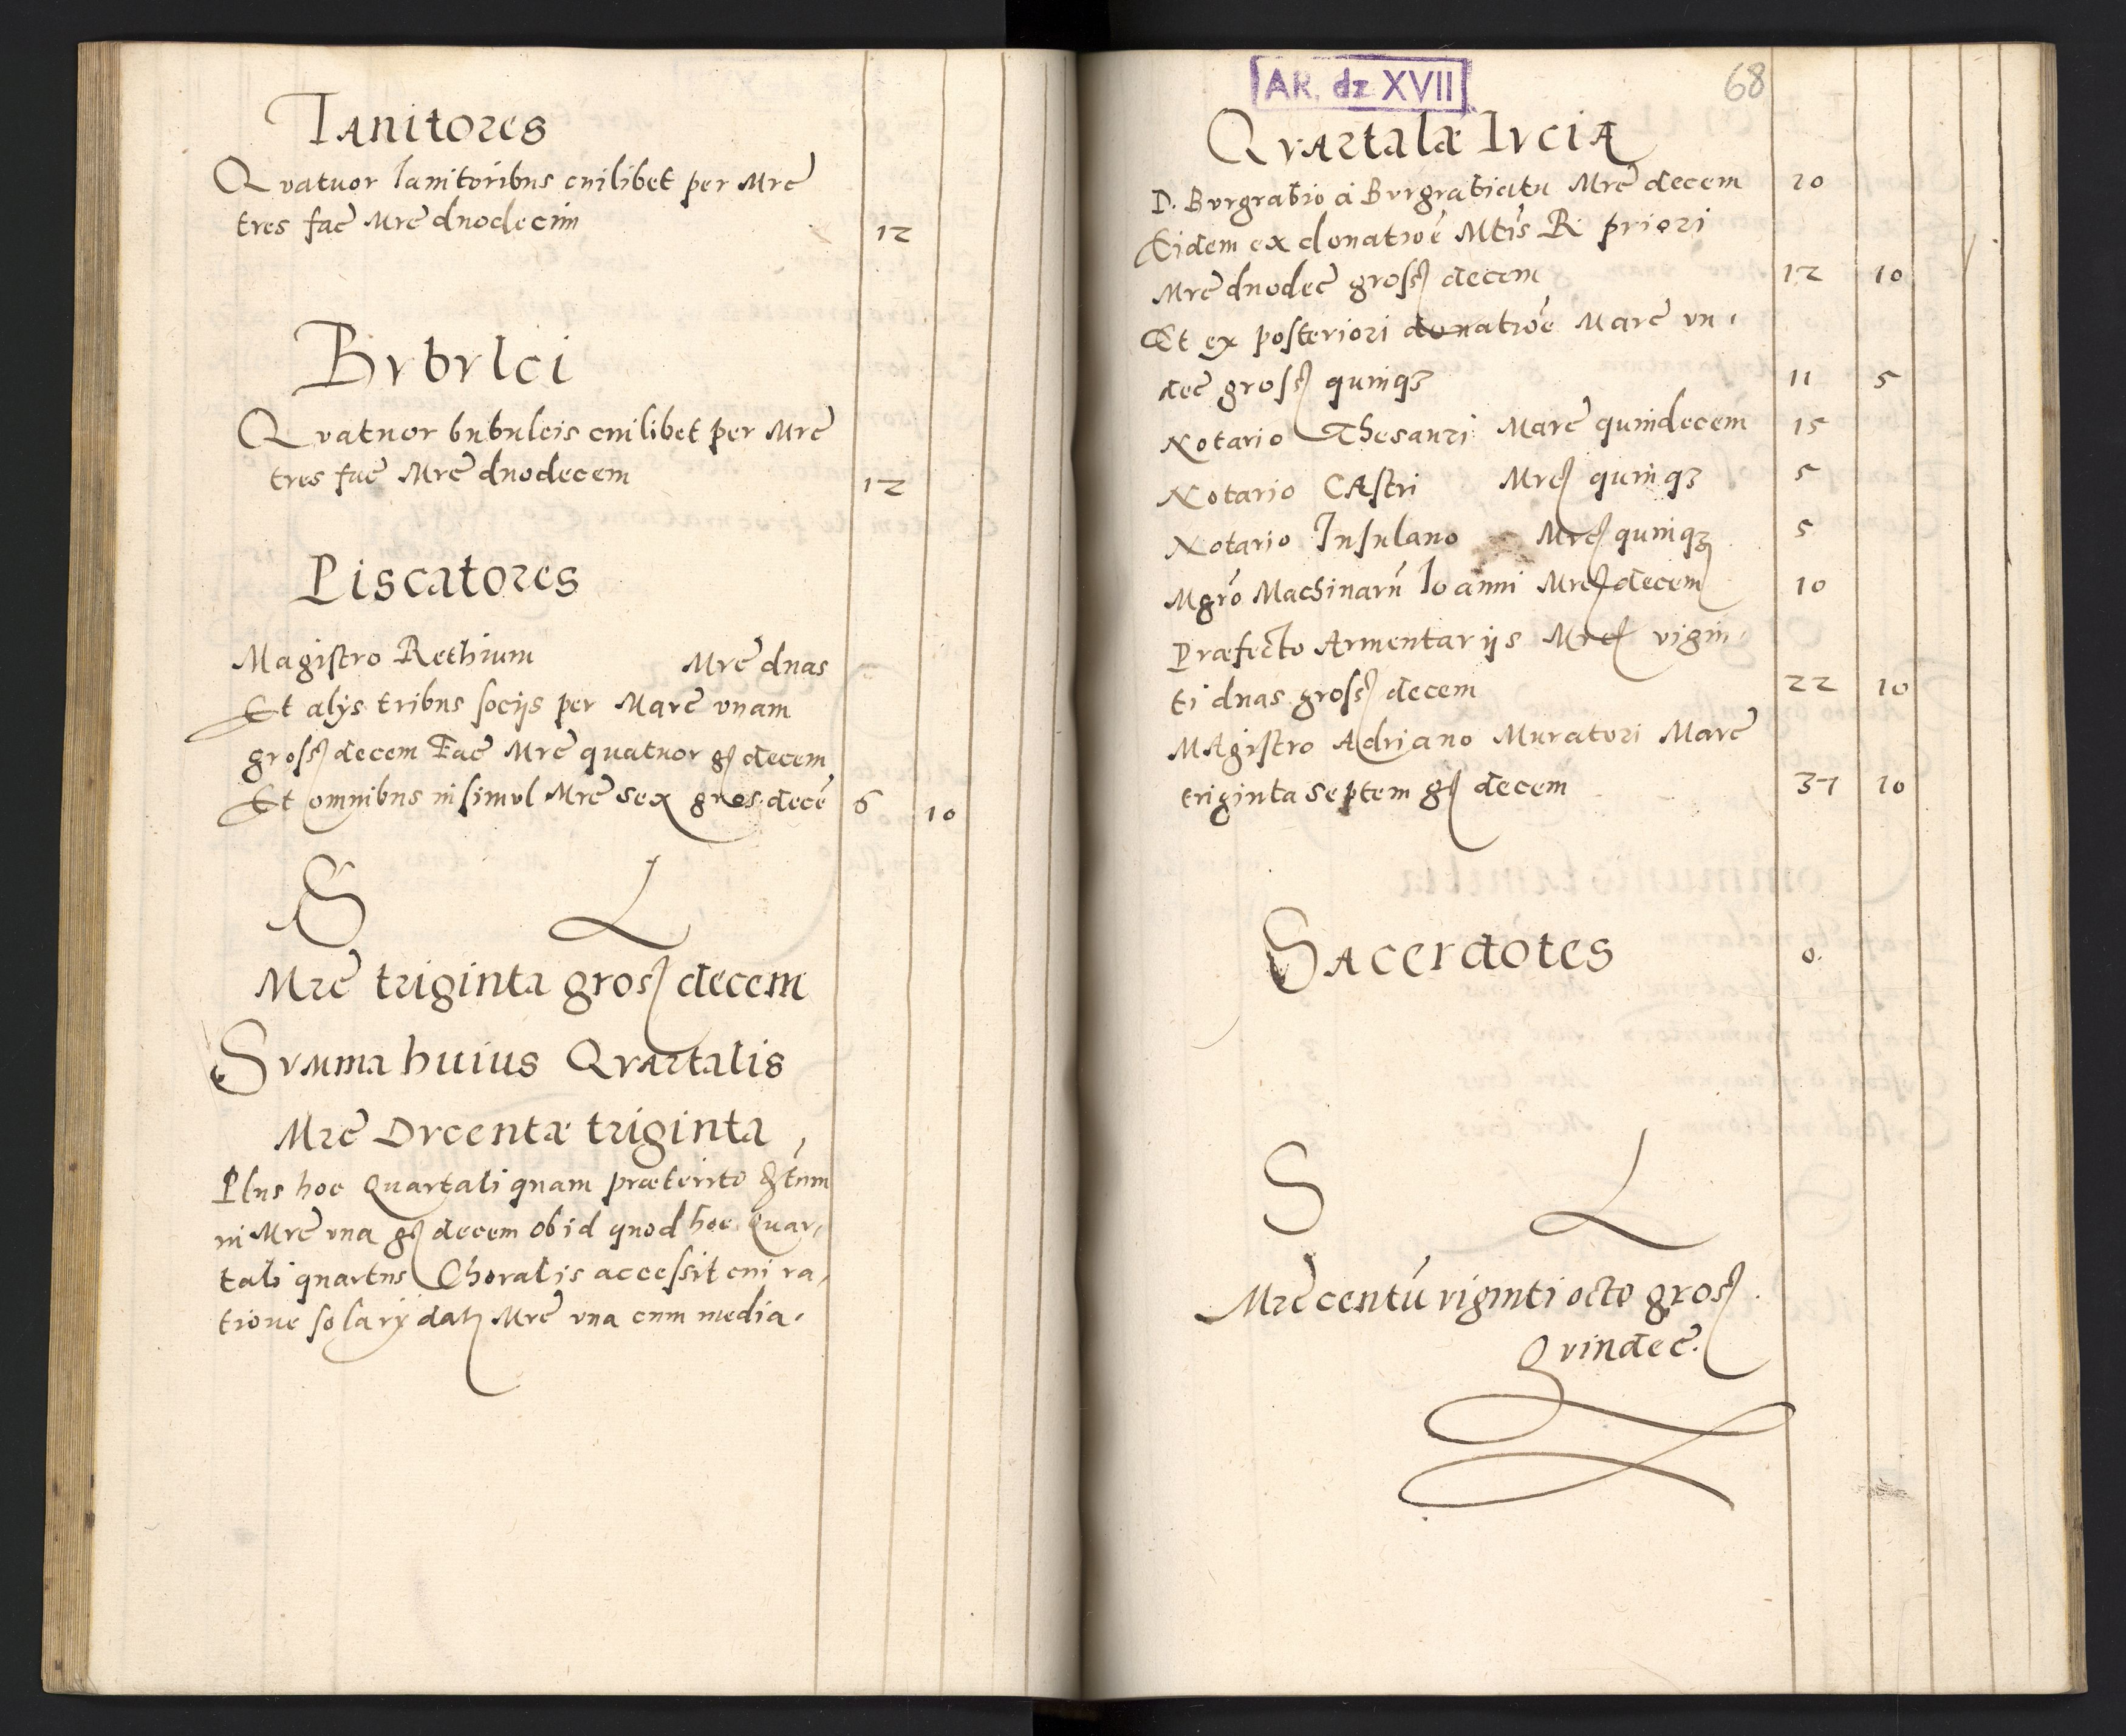 Ianitores
Qvatuor Ianitoribus cuilibet per Mrc̄
tres fac̄ Mrc̄ duodecim
12
Bvbvlci
Qvatuor bubulcis cuilibet per Mrc̄
tres fac̄ Mrc̄ duodecem
12
Piscatores
Magistro Rethium Mrc̄ duas
Et alijs tribus socijs per Marc̄ vnam
gross decem Fac̄ Mrc̄ quatuor g decem
Et omnibus insimvl Mrc̄ sex gros: decē 6 10
S L
Mrc̄ triginta gros decem
Svmma huius Qvartalis
Mrc̄ Dvcentæ triginta,
Plus hoc Quartali quam præterito
in Mrc̄ vna g decem ob id quod hoc Quar,
tali quartus Choralis accessit cui ra,
tione solarij dat Mrc̄ vna cum media.
AR. dz XVII
68
Qvartalæ Lvciæ
D. Bvrgrabio à Bvrgrabiatu Mrc̄ decem 10
Eidem ex donatioē Mtis R priori
Mrc̄ duodec̄ gross decem 12 10
Et ex posteriori donatioē Marc̄ vn,
dec̄ gross quinqꝫ 11 5
Notario Thesauri Marc̄ quindecem 15
Notario Castri Mrc quinqꝫ 5
Notario Insulano Mrc quinqꝫ 5
Mgrō Machinarū Ioanni Mrc decem 10
Præfecto Armentarijs Mrc vigin,
ti duas gross decem 22 10
Magistro Adriano Muratori Marc̄
triginta septem g decem 37 10
Sacerdotes 0.
S L
Mrc̄ centū viginti octo gros
Qvindec̄.